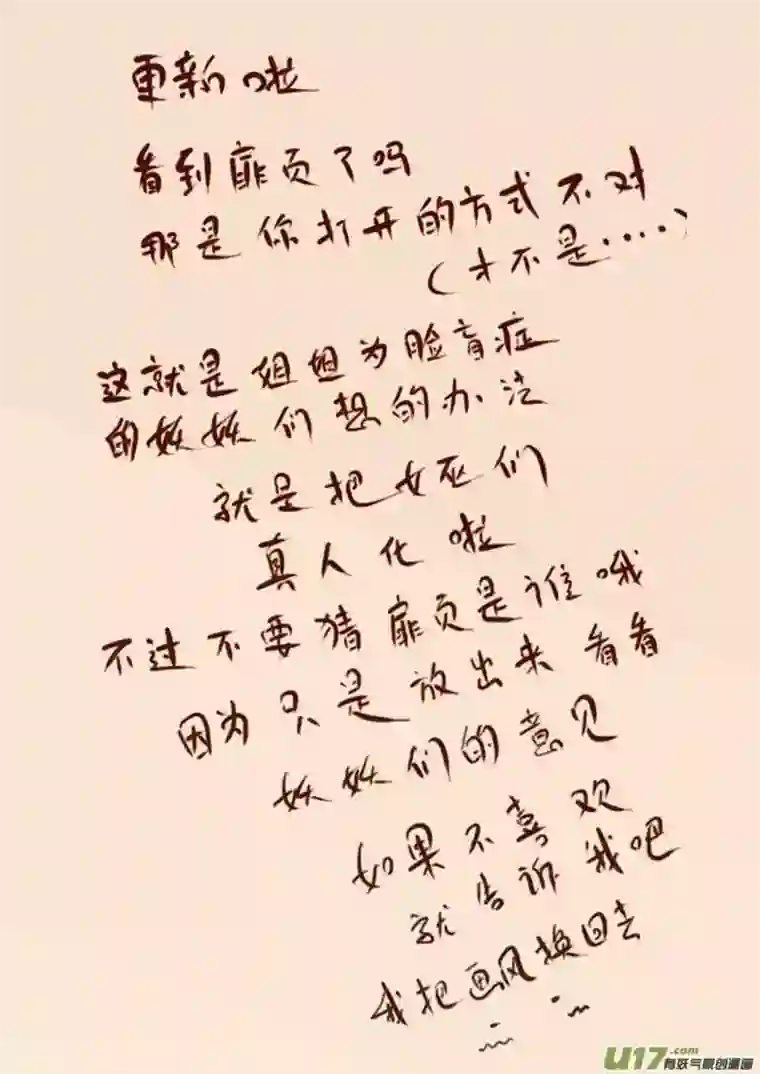 更新啦
看到扉页了吗
那是你打开的方式不对
(才不是····)
这就是姐姐为脸盲症
的妖妖们想的办法
就是把女巫们
真人化啦
不过不要猜扉页是谁哦
因为只是放出来看看
妖妖们的意见
如果不喜欢
就告诉我吧
我把画风换回去
U17.com
有妖气原创漫画